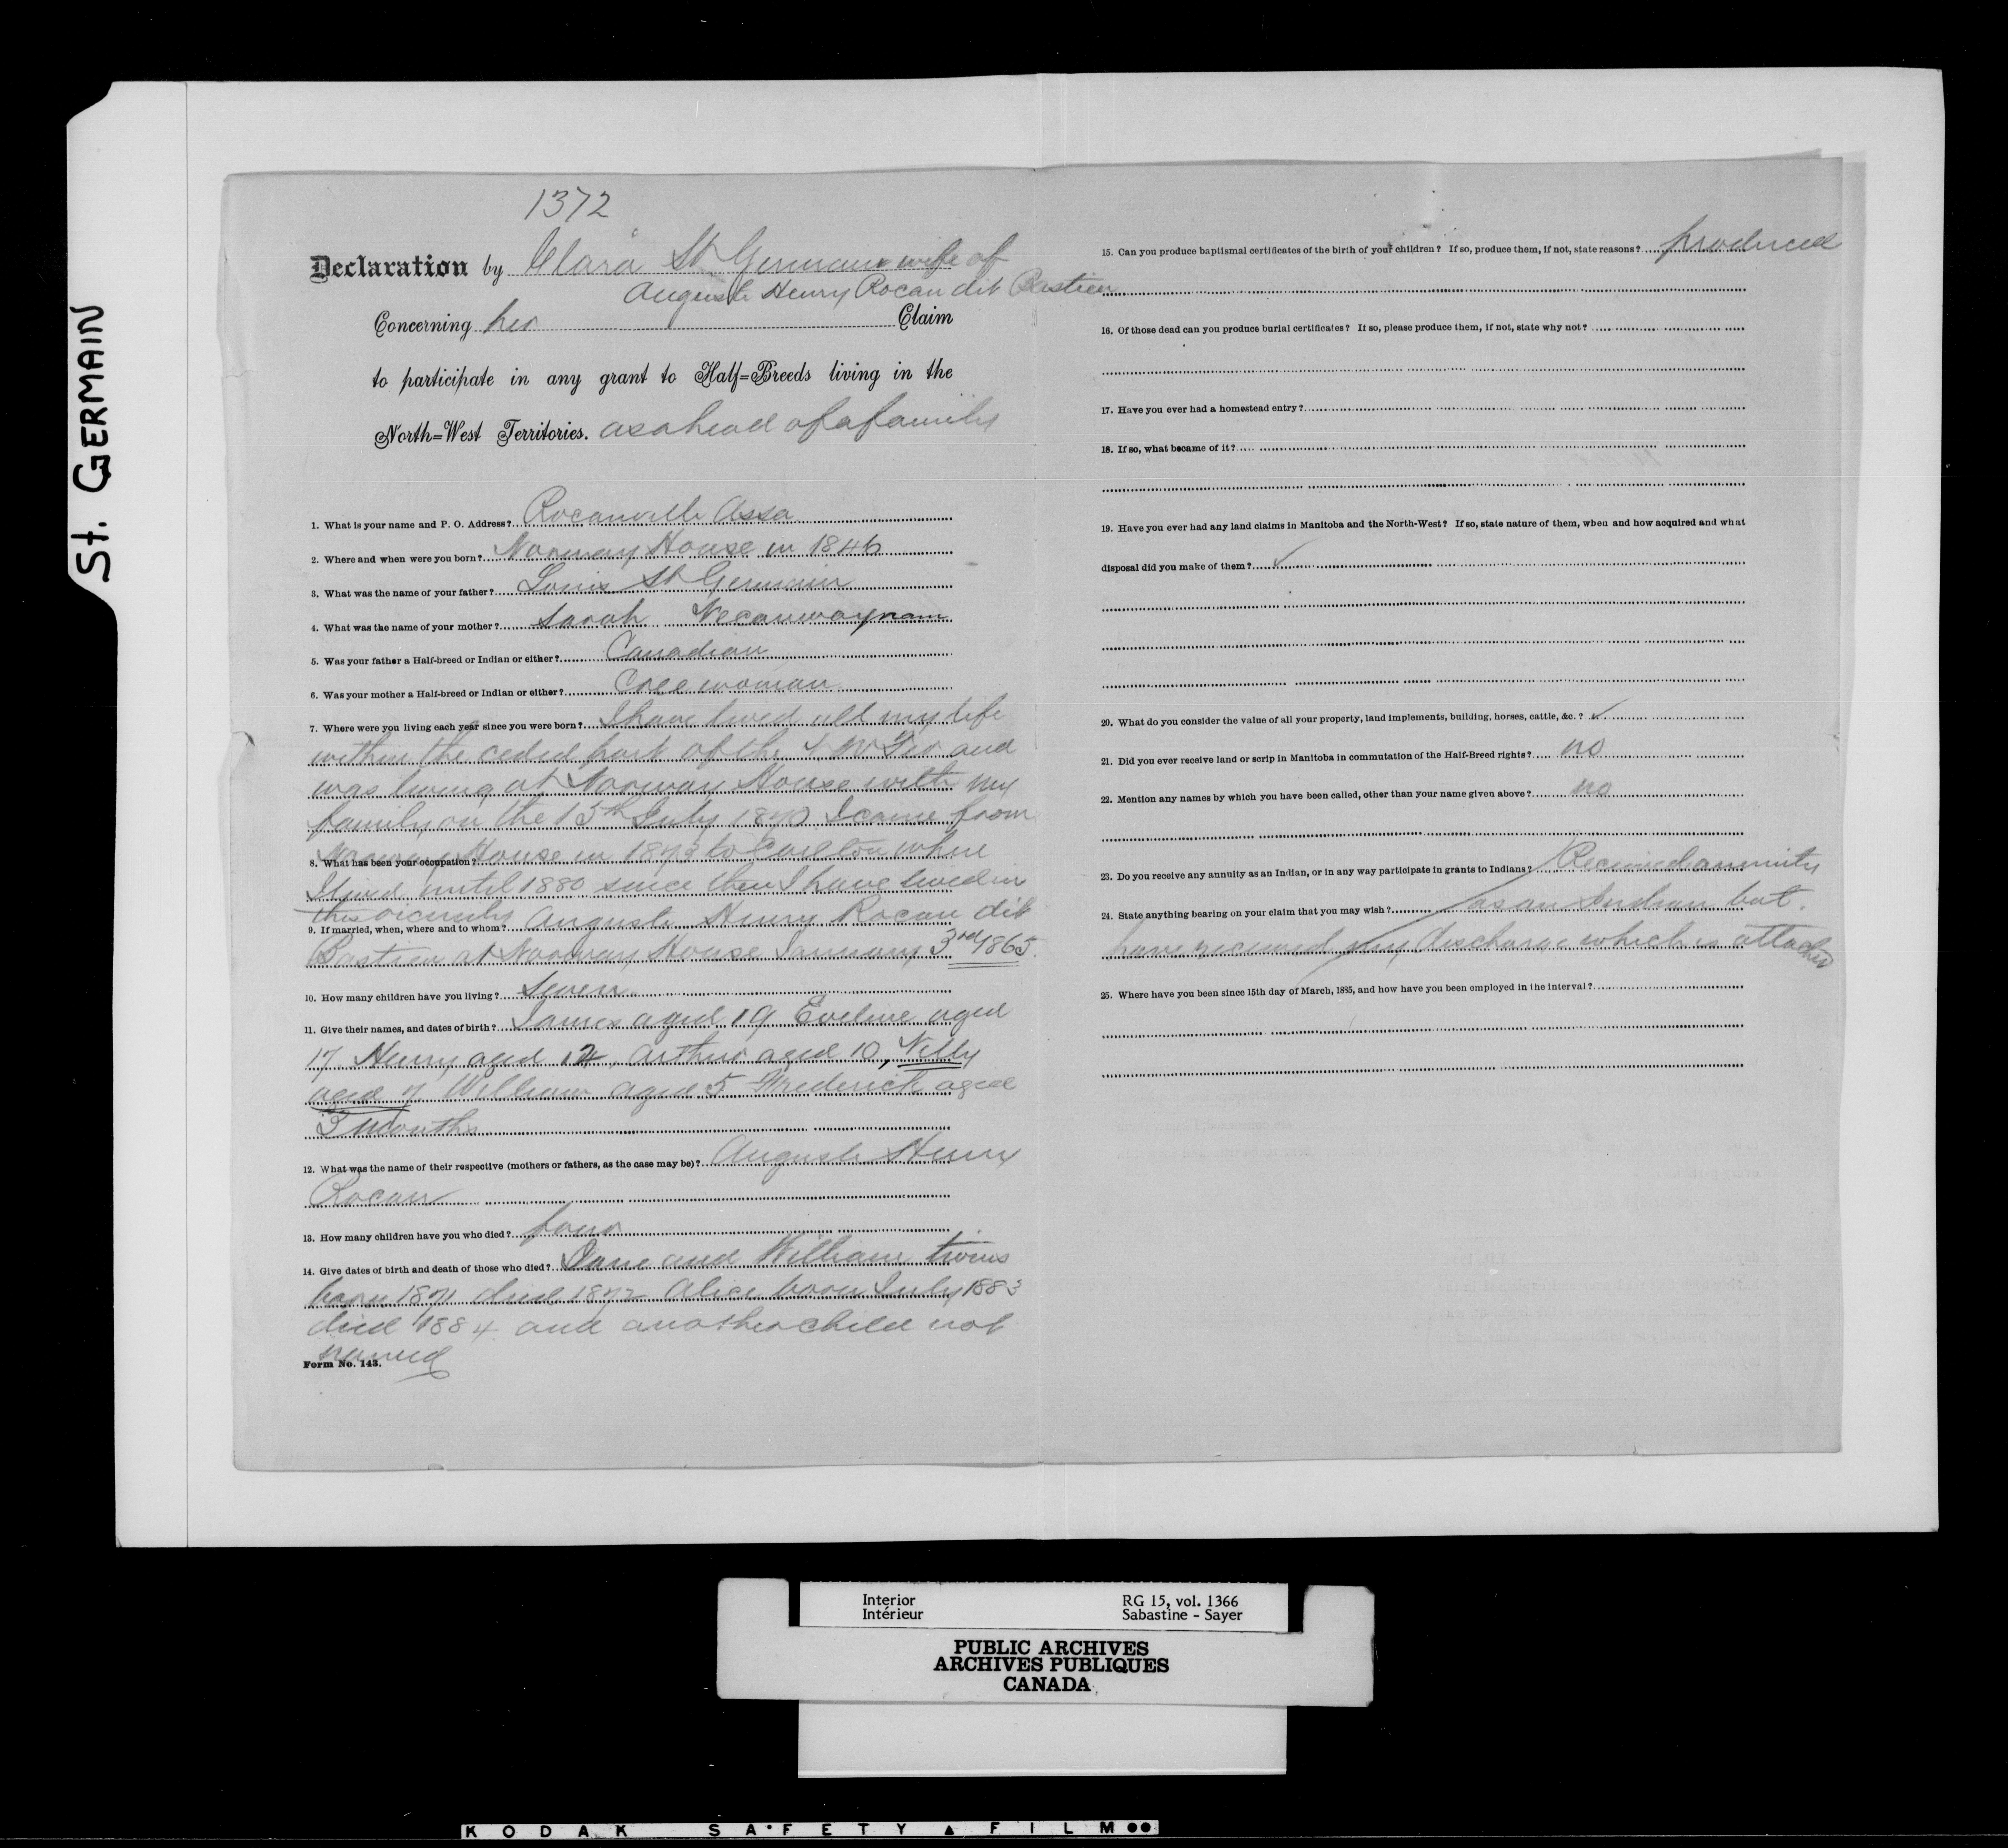 St. GERMAIN
1372
Declaration by Clara St Germain wife of
Auguste Henry Rocan dit Bastien
Concerning her Claim
to participate in any grant to Half=Breeds living in the
North=West Territories. as a head of a family
1. What is your name and P. O. Address? Rocanville Assa
2. Where and when were you born? Norway House in 1846
3. What was the name of your father? Louis St Germain
4. What was the name of your mother? Sarah
5. Was your father a Half-breed or Indian or either? Canadian
6. Was your mother a Half-breed or Indian or either? Cree woman
7. Where were you living each year since you were born? I have lived all my life
within the ceded part of the N W Ter and
was living at Norway House with my
family on the 15th July 1870 I came from
Norway House in 1873 to Carlton where
8. What has been your occupation?
I lived until 1880 since then I have lived in
this vicinity
9. If married, when, where and to whom? Auguste Henry Rocan dit
Bastien at Norway House January 3rd 1865.
10. How many children have you living? Seven
11. Give their names, and dates of birth? James aged 19 Eveline aged
17 Henry aged 12, Arthur aged 10, Nelly
aged 7 William aged 5 Frederick aged
3 months
12. What was the name of their respective (mothers or fathers, as the case may be)? Auguste Henry
Rocan
13. How many children have you who died? four
14. Give dates of birth and death of those who died? Jane and William twins
born 1871 died 1872 Alice born July 1883
died 1884 and another child not
named
Form No. 143.
15. Can you produce baptismal certificates of the birth of your children? If so, produce them, if not, state reasons? produced
16. Of those dead can you produce burial certificates? If so, please produce them, if not, state why not?
17. Have you ever had a homestead entry?
18. If so, what became of it?
19. Have you ever had any land claims in Manitoba and the North-West? If so, state nature of them, when and how acquired and what
disposal did you make of them? ✓
20. What do you consider the value of all your property, land implements, building, horses, cattle, &c.? ✓
21. Did you ever receive land or scrip in Manitoba in commutation of the Half-Breed rights? no
22. Mention any names by which you have been called, other than your name given above? no
23. Do you receive any annuity as an Indian, or in any way participate in grants to Indians? Received annuity
24. State anything bearing on your claim that you may wish? as an Indian but
have received my discharge which is attached
25. Where have you been since 15th day of March, 1885, and how have you been employed in the interval?
Interior RG 15, vol. 1366
Intérieur Sabastine - Sayer
PUBLIC ARCHIVES
ARCHIVES PUBLIQUES
CANADA
KODAK SAFETY FILM